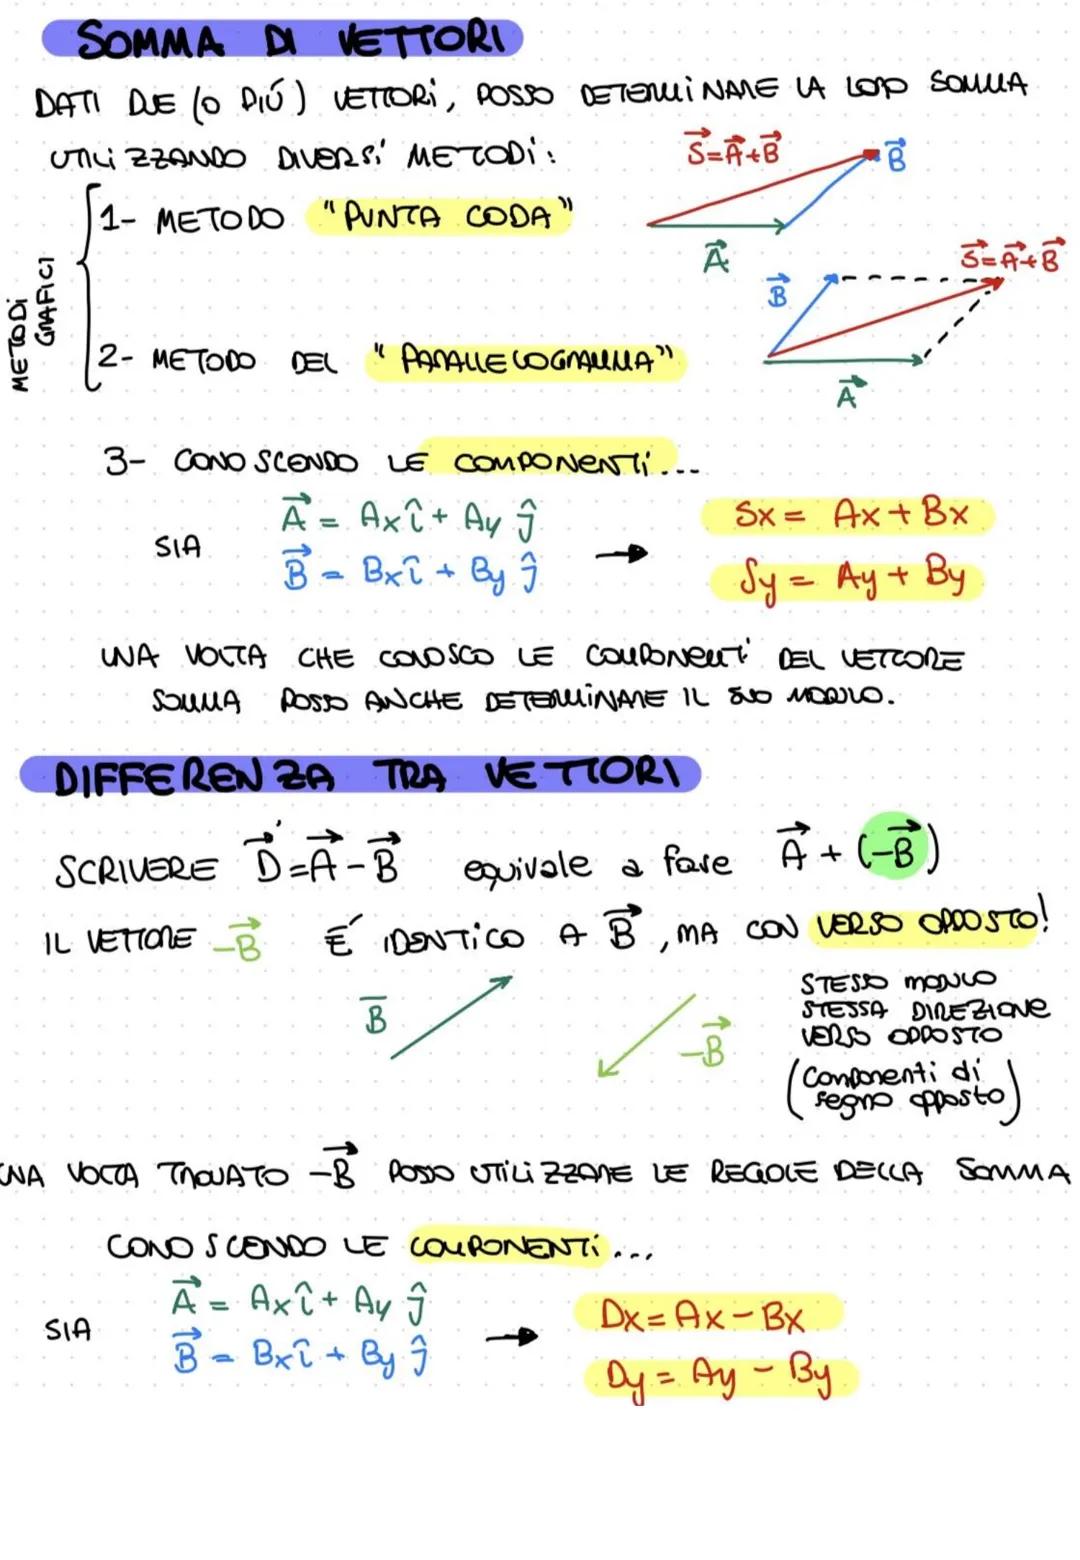 SOMMA DI VETTORI
DATI DUE (O PIÚ) VETTORI, POSSO DETERMINARE LA LORO SOMMA
UTILIZZANDO DIVERSI METODI:
S⃗=A⃗+B⃗
B⃗
1- METODO "PUNTA CODA"
A⃗
METODI GRAFICI
S⃗=A⃗+B⃗
B⃗
2- METODO DEL "PARALLELOGRAMMA"
A⃗
3- CONOSCENDO LE COMPONENTI...
SIA
A⃗ = Axî + Ay ĵ
B⃗ = Bxî + By ĵ
→
Sx = Ax + Bx
Sy = Ay + By
UNA VOLTA CHE CONOSCO LE COMPONENTI DEL VETTORE
SOMMA POSSO ANCHE DETERMINARE IL SUO MODULO.
DIFFERENZA TRA VETTORI
SCRIVERE D⃗=A⃗-B⃗ equivale a fare A⃗ + (-B⃗)
IL VETTORE -B⃗ É IDENTICO A B⃗, MA CON VERSO OPPOSTO!
B̅
-B⃗
STESSO MODULO
STESSA DIREZIONE
VERSO OPPOSTO
(componenti di
segno opposto)
UNA VOLTA TROVATO -B⃗ POSSO UTILIZZARE LE REGOLE DELLA SOMMA
CONOSCENDO LE COMPONENTI...
SIA
A⃗ = Axî + Ay ĵ
B⃗ = Bxî + By ĵ
→
Dx = Ax - Bx
Dy = Ay - By